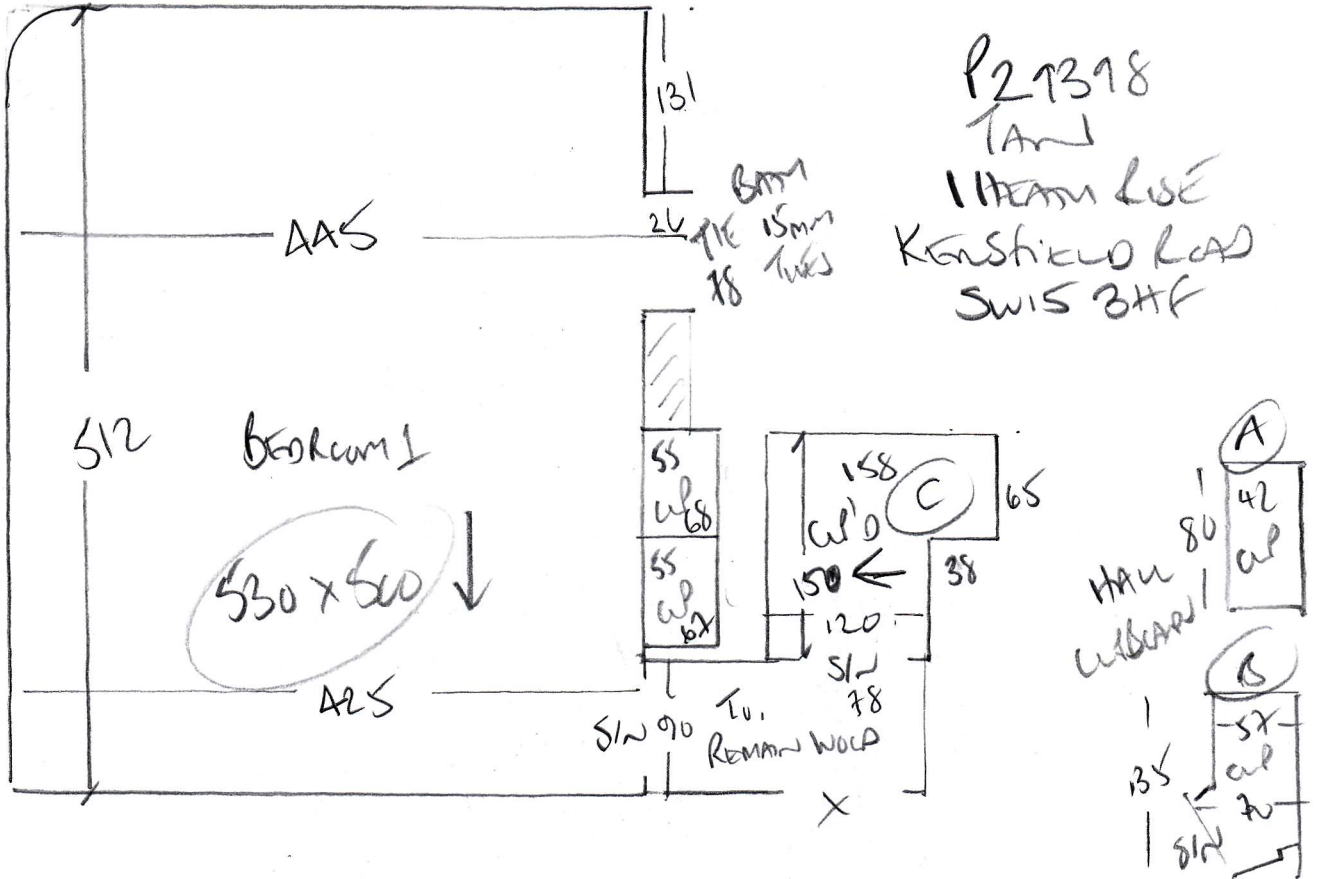 P29398
TAN
11 HEATH RISE
KERSFIELD ROAD
SW15 3HF
131
BATH
26
PIE 15MM
78
445
512
BEDROOM 1
530 x 500
425
55
CUP
68
55
CUP
67
158
C
65
CUP'D
150
38
120
S/N
78
S/N 90
TO.
REMAIN WOOD
X
A
42
80
CUP
HALL
CUPBOARD
B
57
CUP
135
70
S/N